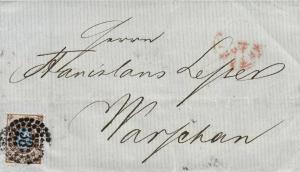 Herrn
Stanislaus Lesser
Warschau